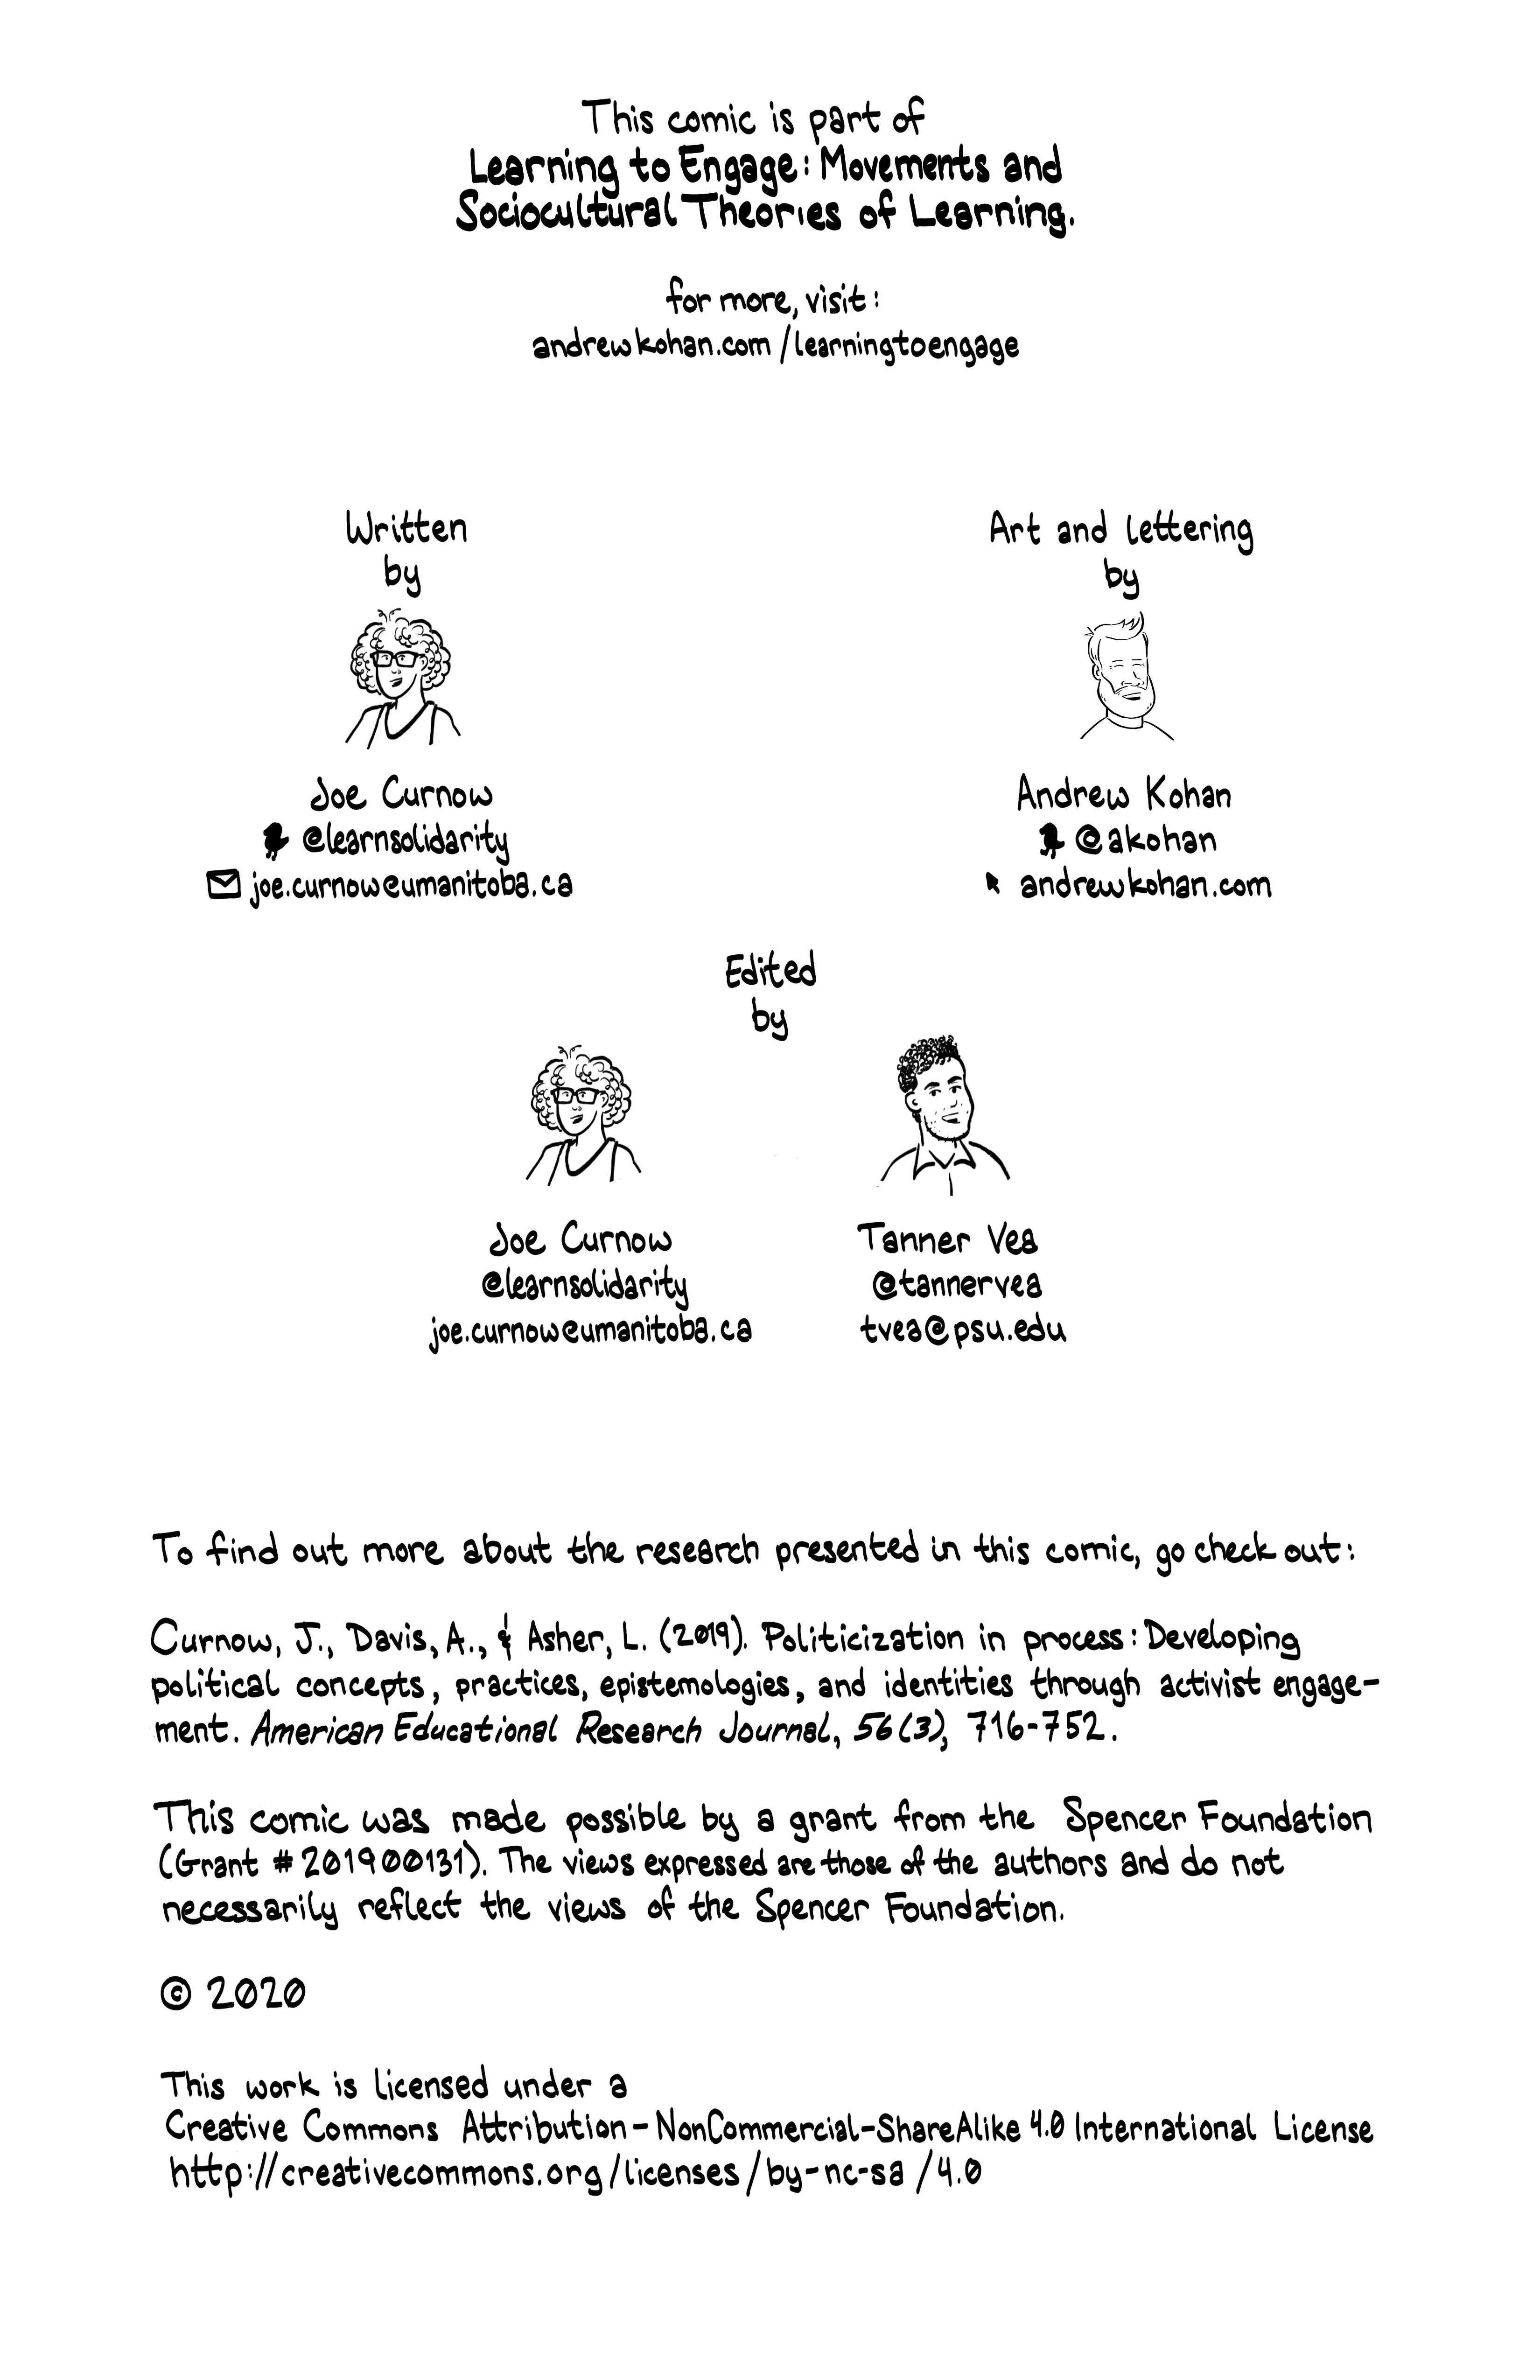 This comic is part of
Learning to Engage: Movements and
Sociocultural Theories of Learning.
for more, visit:
andrewkohan.com/learningtoengage
Written
by
Joe Curnow
@learnsolidarity
joe.curnow@umanitoba.ca
Art and lettering
by
Andrew Kohan
@akohan
andrewkohan.com
Edited
by
Joe Curnow
@learnsolidarity
joe.curnow@umanitoba.ca
Tanner Vea
@tannervea
tvea@psu.edu
To find out more about the research presented in this comic, go check out:
Curnow, J., Davis, A., & Asher, L. (2019). Politicization in process: Developing
political concepts, practices, epistemologies, and identities through activist engage-
ment. American Educational Research Journal, 56(3), 716-752.
This comic was made possible by a grant from the Spencer Foundation
(Grant #201900131). The views expressed are those of the authors and do not
necessarily reflect the views of the Spencer Foundation.
© 2020
This work is licensed under a
Creative Commons Attribution-NonCommercial-ShareAlike 4.0 International License
http://creativecommons.org/licenses/by-nc-sa/4.0